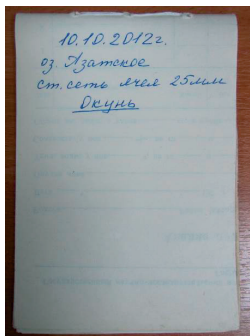 10.10.2012г.
оз. Азатское
ст. сеть ячея 25мм
Окунь